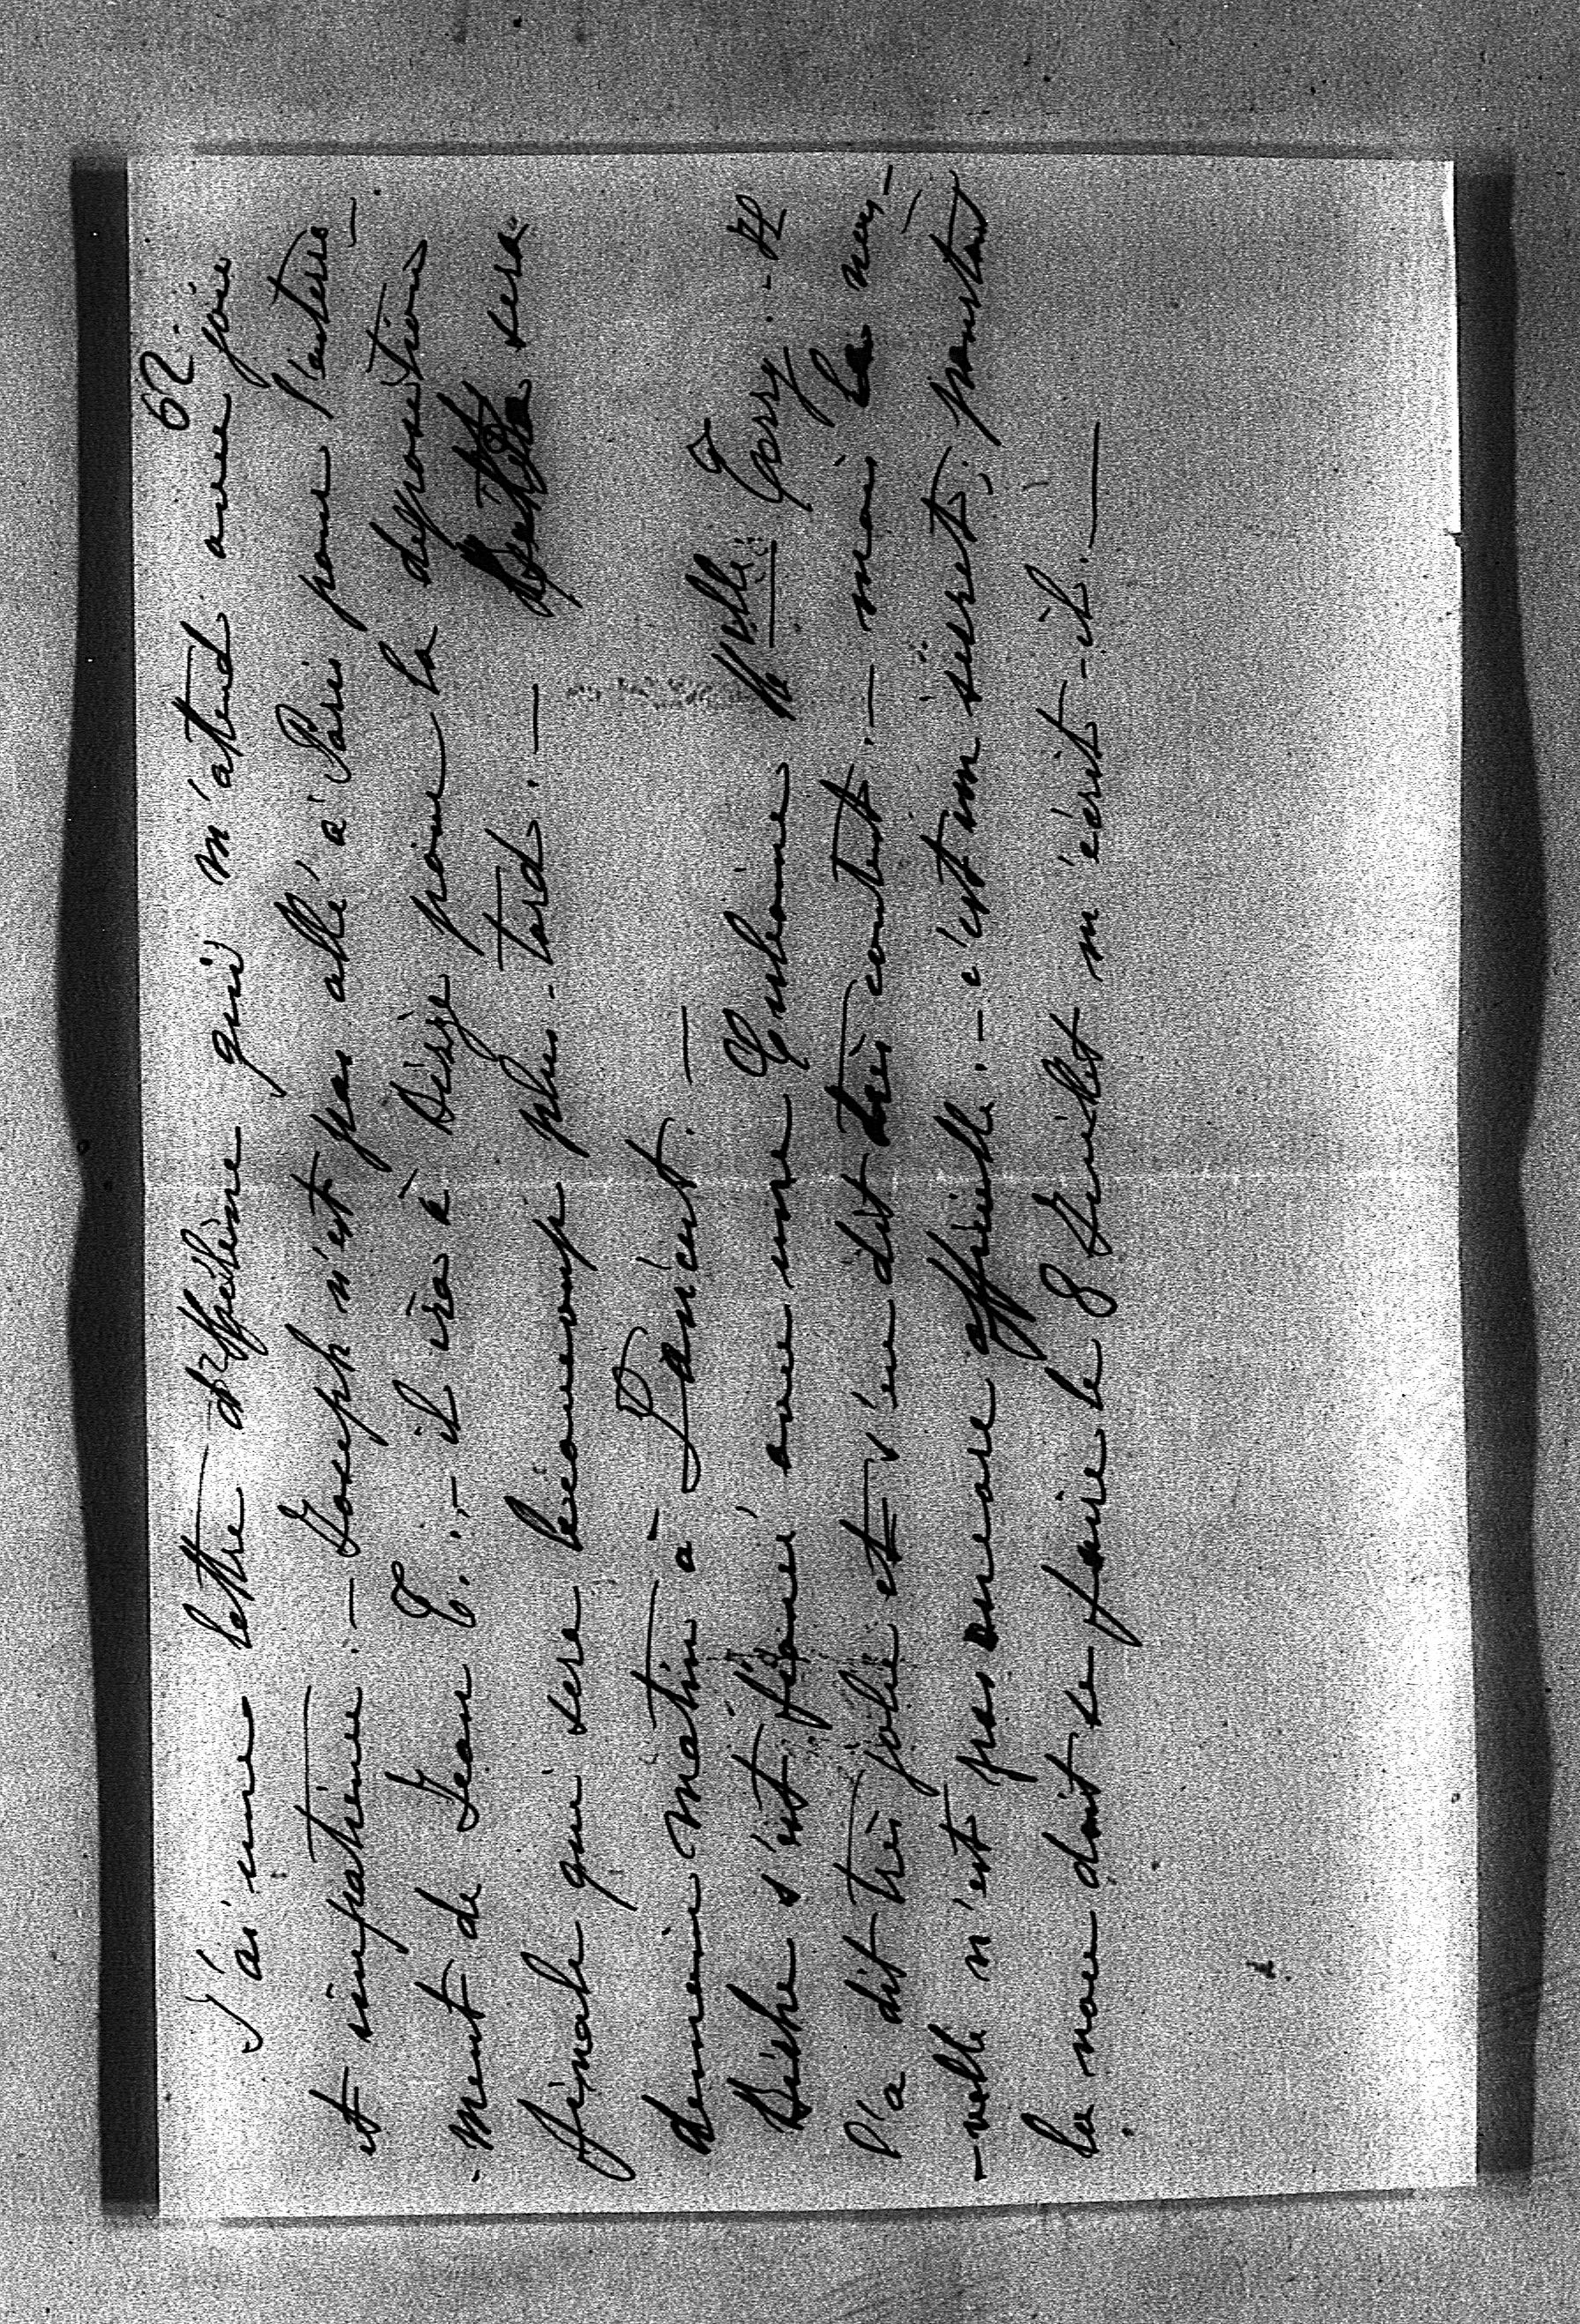 62.
J'ai une lettre d'Hélène qui m'atend avec joie
et impatience. — Joseph n'est pas allé à Paris pour l'enterre-
-ment de Jean T... — il ira à Liège pour la déposition
finale qui sera beaucoup plus-tard. — sera
demain matin à Lancut. —
Bishe s'est fiancé avec une Cubaine Melle Torry. — Il
l'a dit très jolie et s'en dit très content. — mais la nou-
-velle n'est pas encore officielle. — c'est un secret, pourtant
la noce doit se faire le 8 Juillet m'écrit-il. —